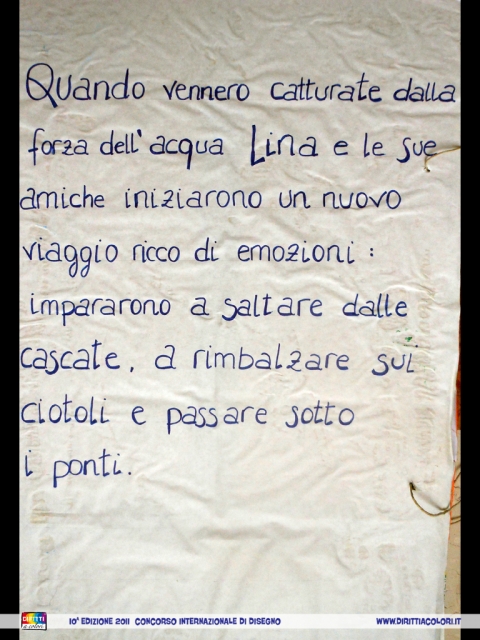 Quando vennero catturate dalla
forza dell'acqua Lina e le sue
amiche iniziarono un nuovo
viaggio ricco di emozioni :
impararono a saltare dalle
cascate, a rimbalzare sui
ciotoli e passare sotto
i ponti.
DIRITTI
a colori
10ª EDIZIONE 2011 CONCORSO INTERNAZIONALE DI DISEGNO
WWW.DIRITTIACOLORI.IT